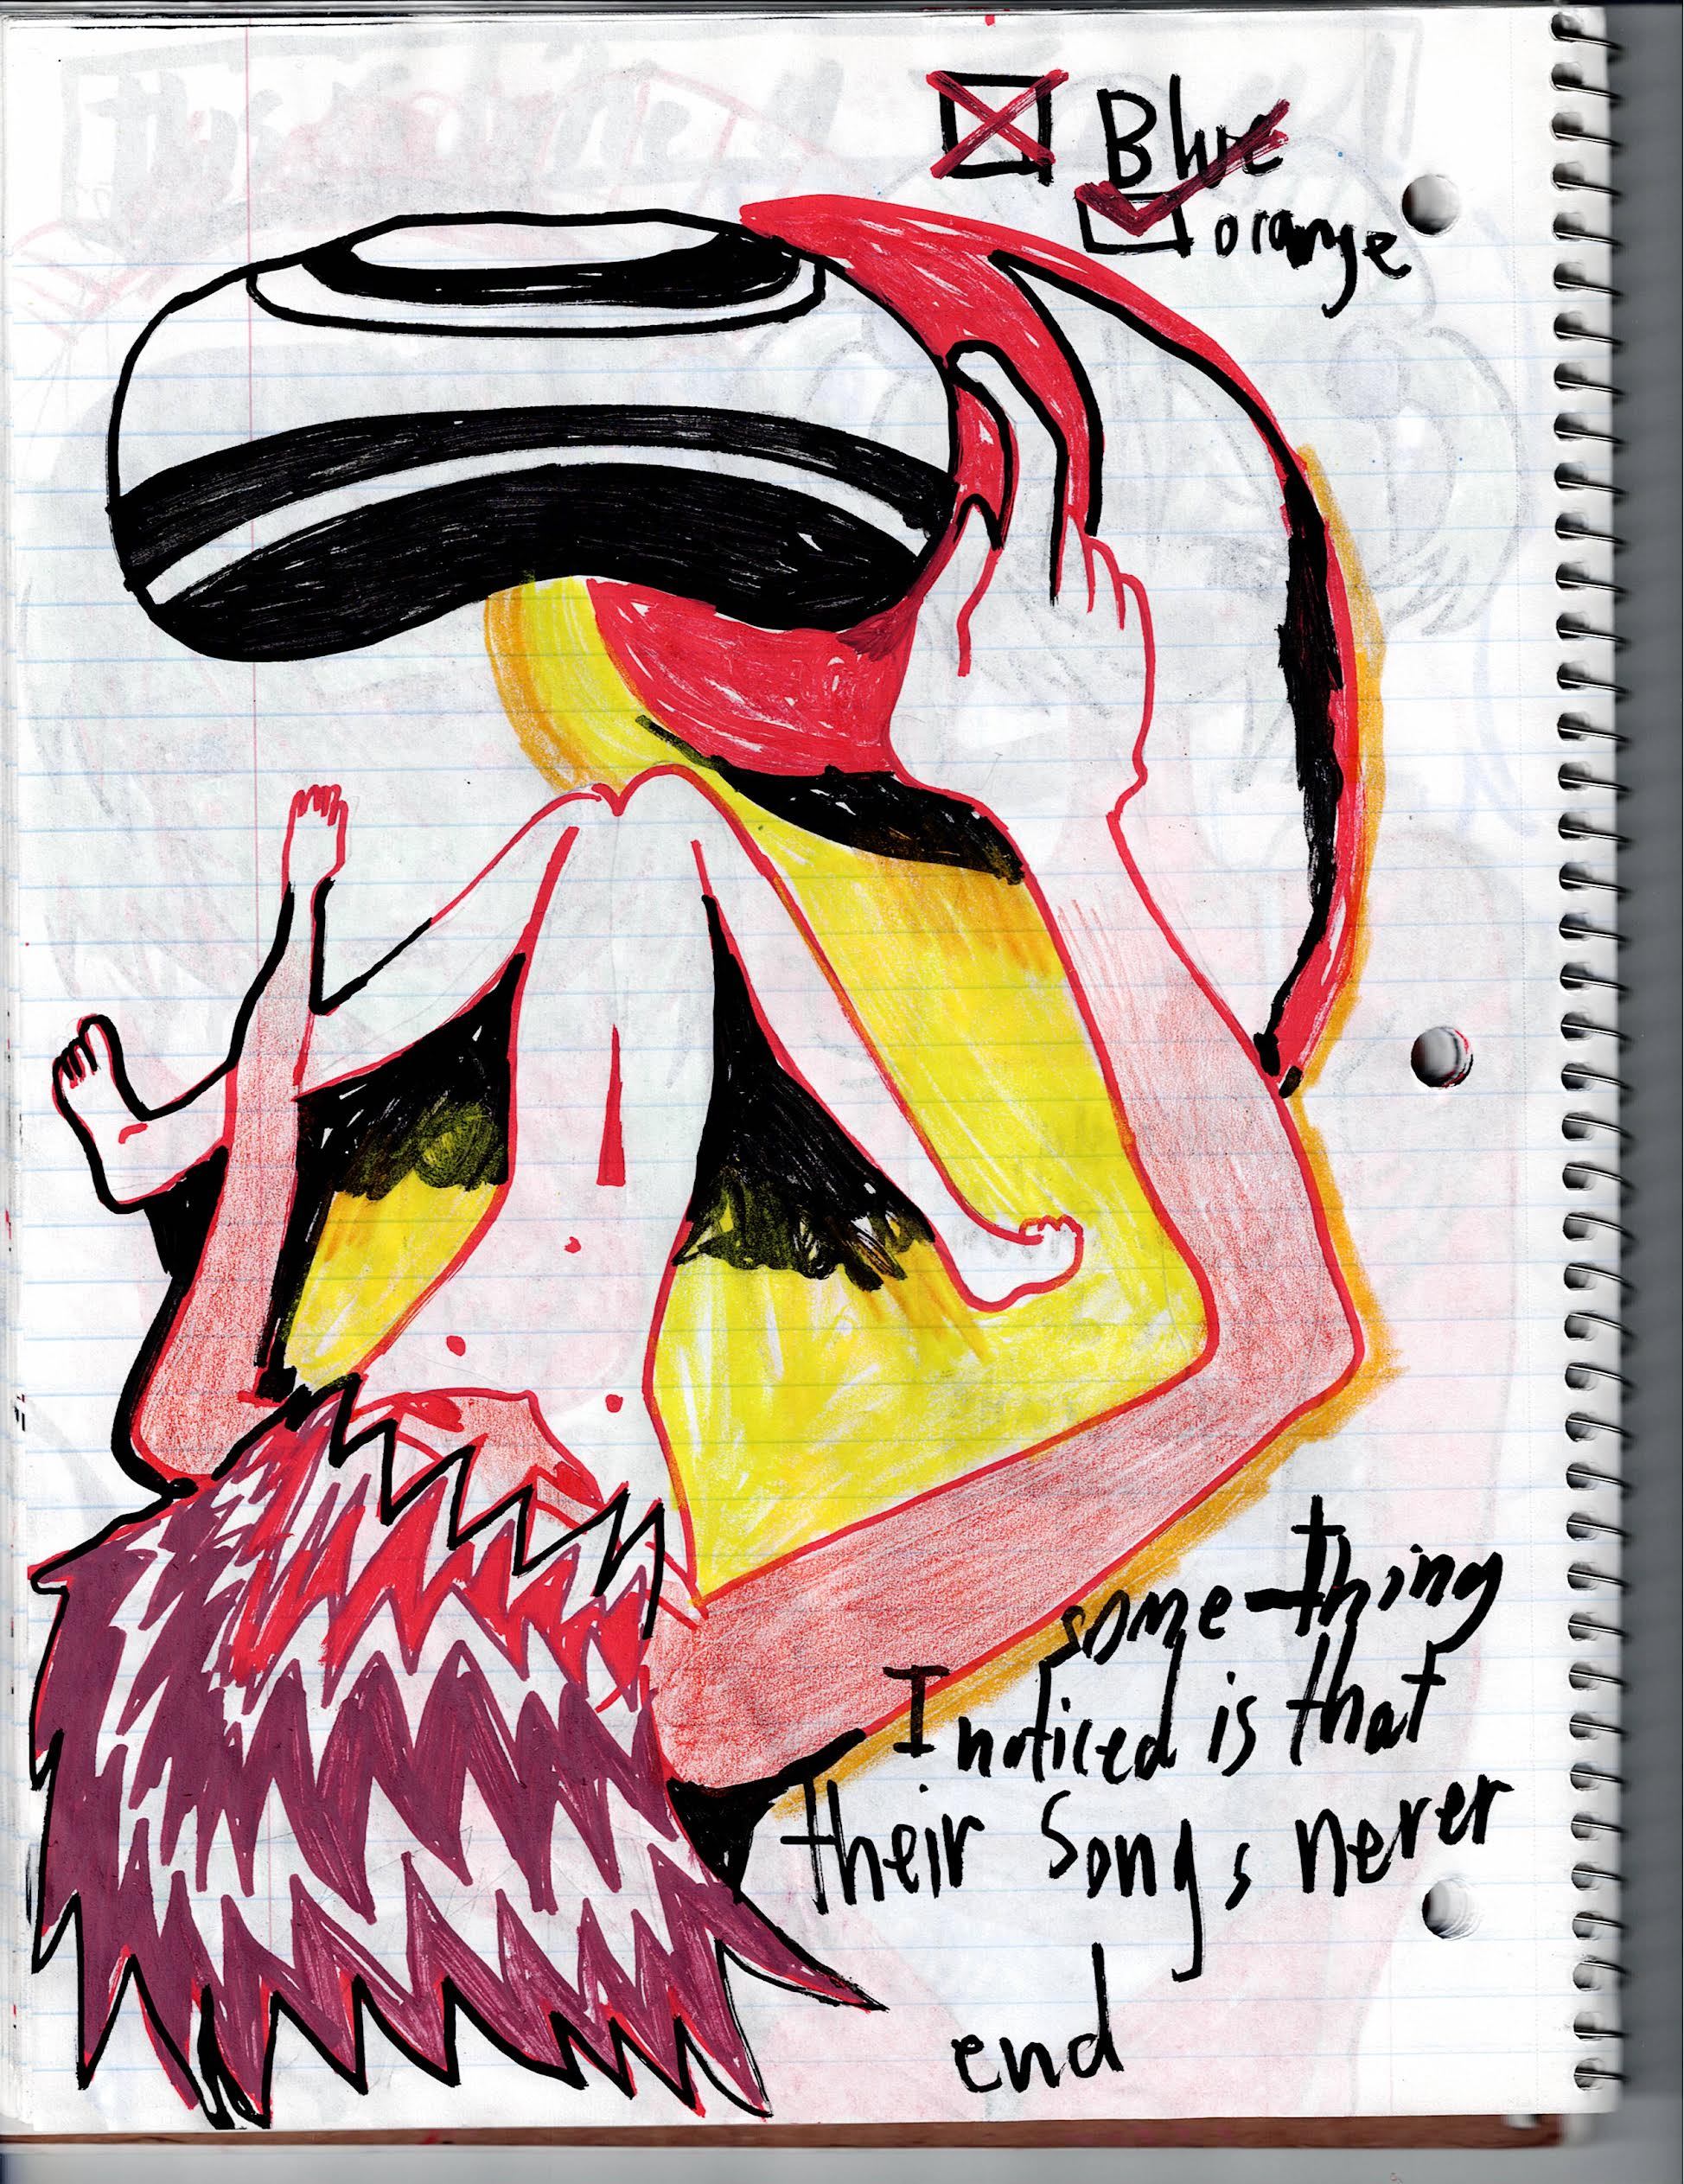 Blue
orange
some-thing
I noticed is that
their songs never
end